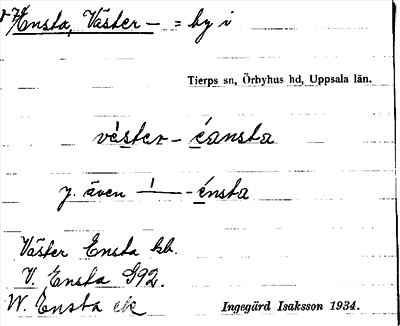 Hensta, Väster – = by i
Tierps sn, Örbyhus hd, Uppsala län.
vèster – éansta
y. även ––––– - énsta
Väster Ensta kb.
V. Ensta G92.
W. Ensta ek
Ingegärd Isaksson 1934.